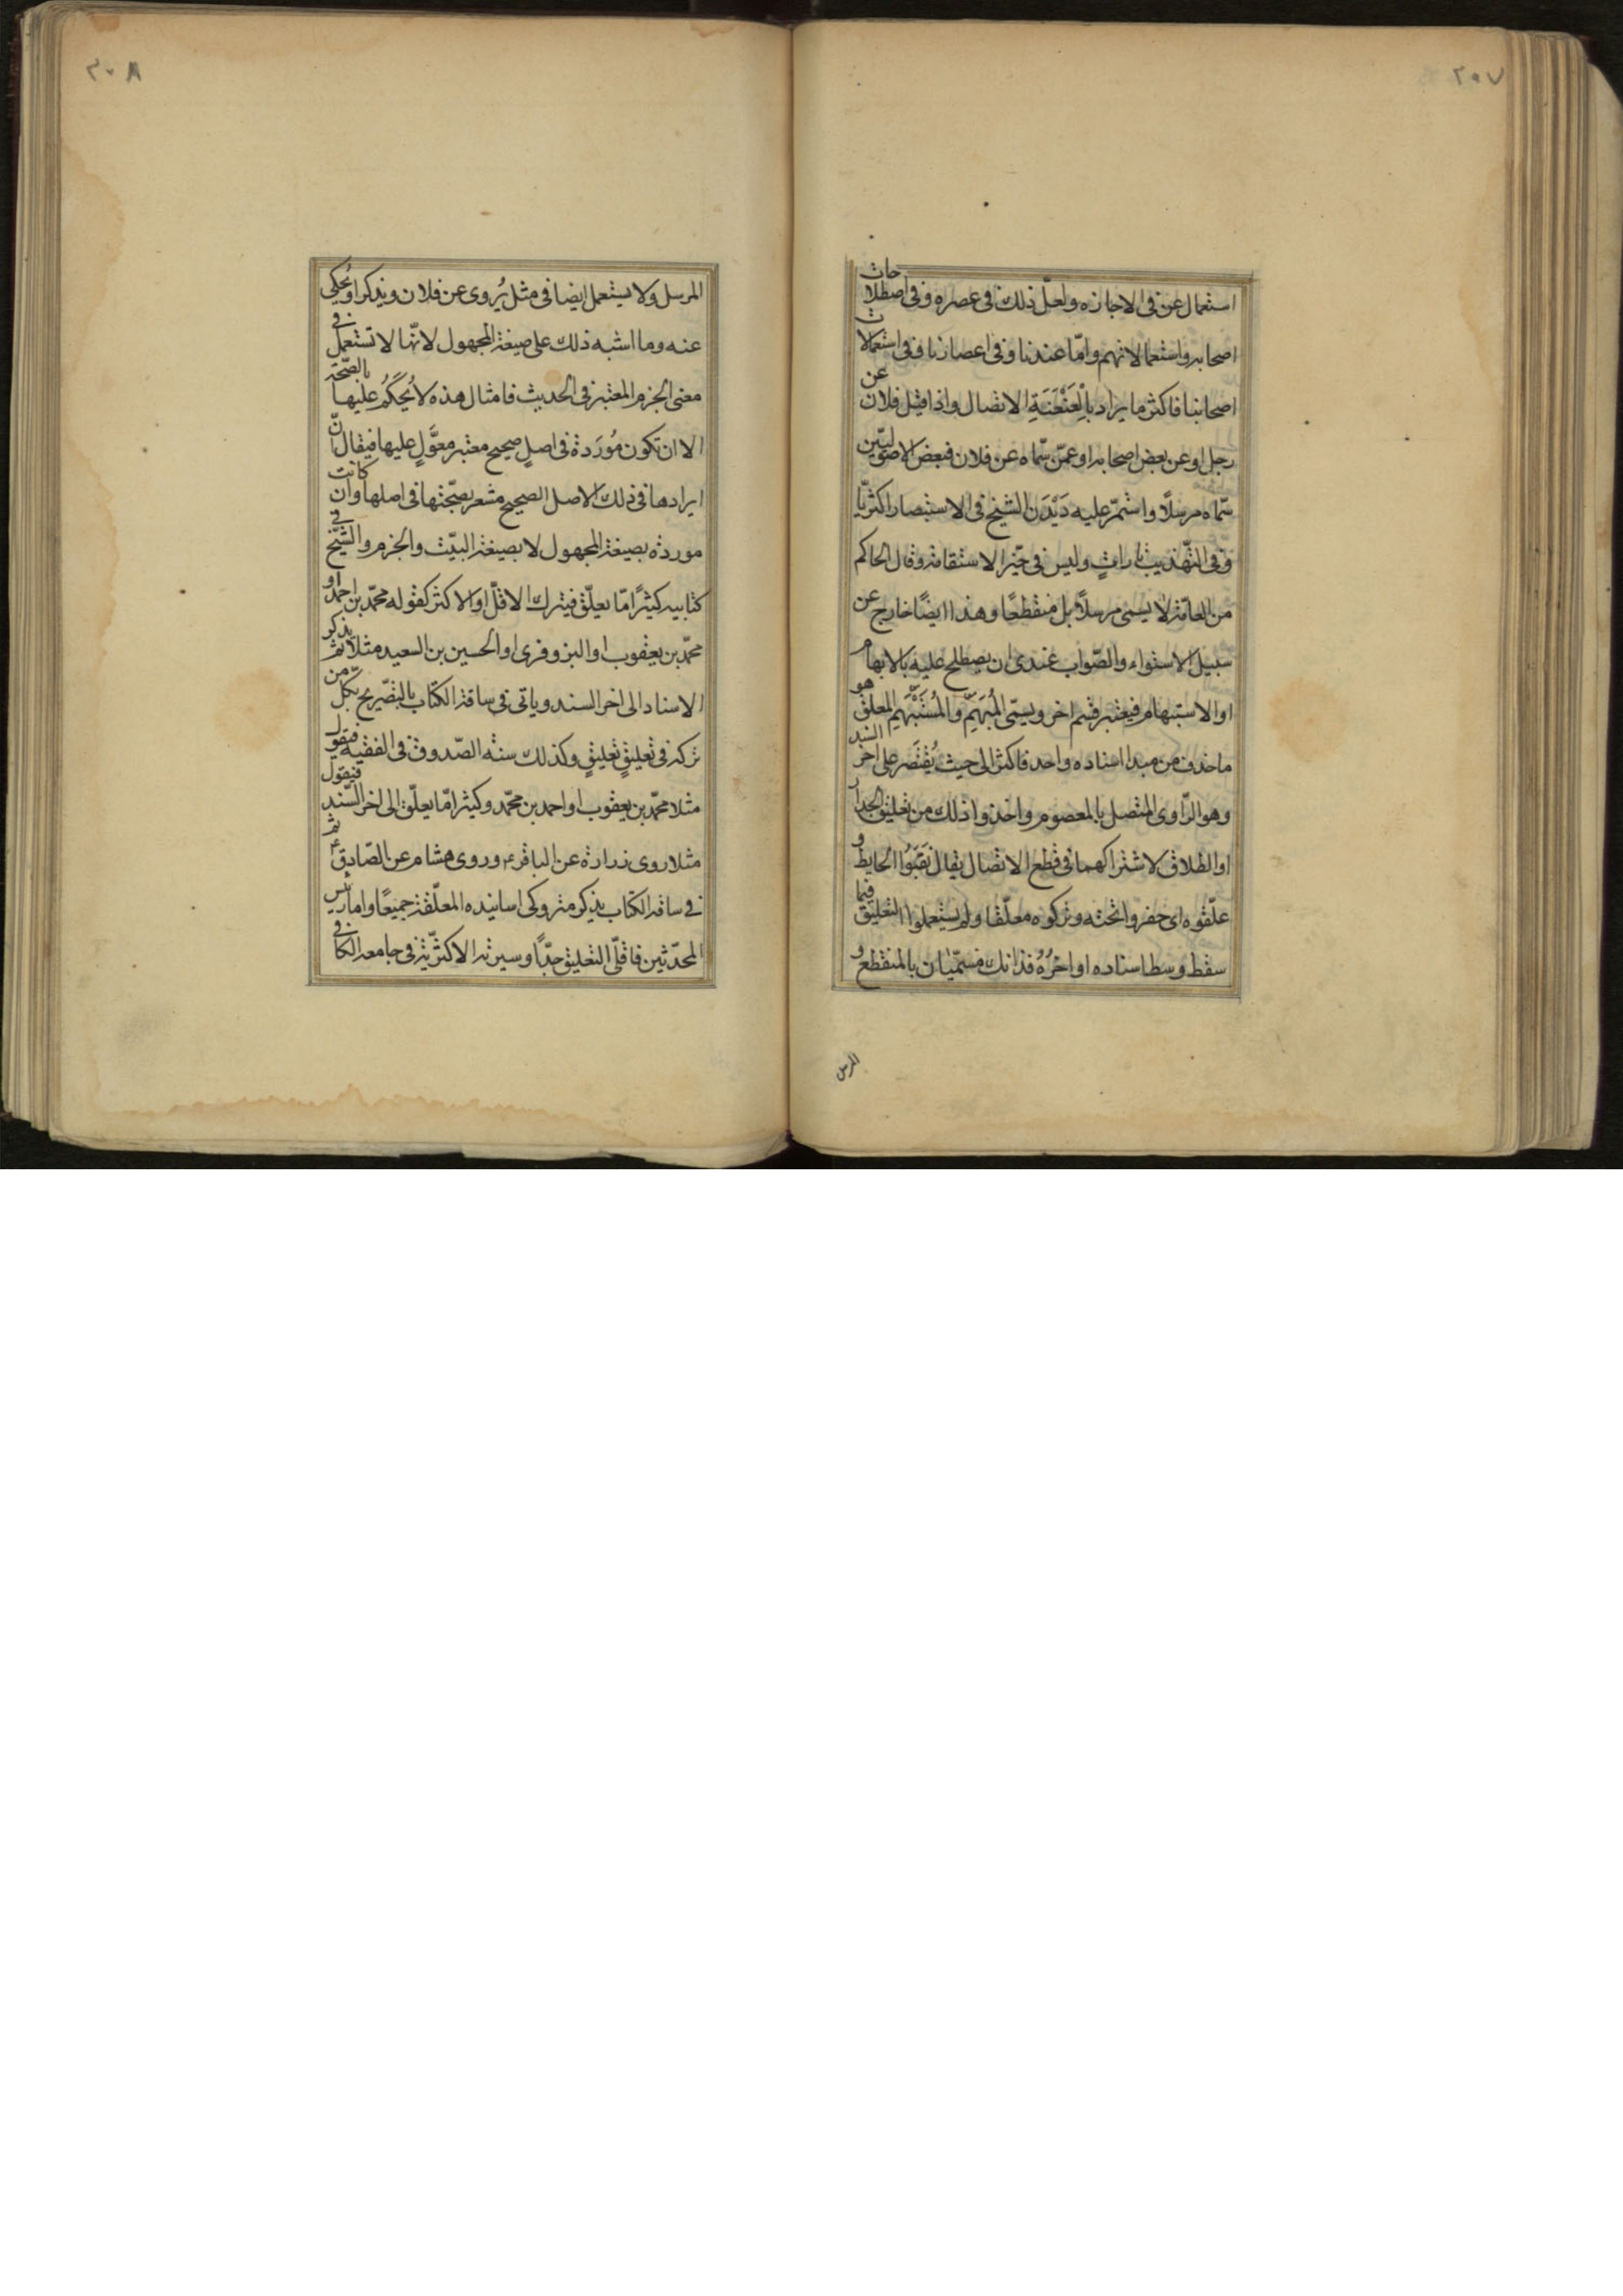 ٢٠٧
استعمال عن فى الاجازه ولعلّ ذلك فى عصره وفى اصطلاحات
اصحابه واستعمالاتهم وامّا عندنا وفى اعصارنا وفى استعمالات
اصحابنا فاكثر ما يراد بالْعَنْعَنَةِ الاتصال واذا قيل فلان عن
رجل او عن بعض اصحابه او عمّن سمّاه عن فلان فبعض الاصوليّين
سمّاه مرسلًا واستمرّ عليه دَيْدَن الشيخ فى الاستبصار اكثريّا
وفى التهذيب تاراتٍ وليس فى حيّز الاستقامة وقال الحاكم
من العامّة لا يسمى مرسلًا بل منقطعًا وهذا ايضًا خارج عن
سبيل الاستواء والصّواب عندى ان يصطلح عليه بالابهام
او الاستبهام فيعتبر قسم اخر ويسمّى المُبْهَم والمُسْتَبْهَم المعلق هو
ما حذف من مبدا اسناده واحد فاكثر الى حيث يُقْتَصَر على اخر السند
وهو الرّاوى المتصل بالمعصوم واخذوا ذلك من تعليق الجدار
او الطلاق لاشتراكهما فى قطع الاتصال يقال نَقَبُوا الحايط و
علّقوه اى حفروا تحته وتركوه معلّقا ولم يستعملوا التعليق فيما
سقط وسط اسناده او اخرُهُ فذانك مسمّيان بالمنقطع و
المرسل
٢٠٨
المرسل ولا يستعمل ايضا فى مثل يُروى عن فلان ويذكر او يُحكى
عنه وما اشبه ذلك على صيغة المجهول لانّها لا تستعمل فى
معنى الجزم المعتبر فى الحديث فامثال هذه لا يُحكَمُ عليها بالصّحّة
الا ان تكون مُورَدة فى اصلٍ صحيح معتبر معوَّلٍ عليها فيقال انّ
ايرادها فى ذلك الاصل الصحيح مشعر بصحّتها فى اصلها وان كانت
موردة بصيغة المجهول لا بصيغة البتّ والجزم والشّيخ فى
كتابيه كثيرًا مّا يعلّق فيترك الاقلّ او الاكثر كقوله محمّد بن احمد او
محمّد بن يعقوب او البزوفرى او الحسين بن السعيد مثلا ثم يذكر
الاسناد الى اخر السند وياتى فى ساقة الكتاب بالتصّريح بكلّ من
تركه فى تعليقٍ تعليقٍ وكذلك سنّه الصّدوق فى الفقيه فيقول
مثلا محمّد بن يعقوب او احمد بن محمّد وكثيرا مّا يعلّق الى اخر السّند فيقول
مثلا روى زرارة عن الباقر ع وروى هشام عن الصّادق ع ثم
فى ساقة الكتاب يذكر متروكى اسانيده المعلّقة جميعًا واما رئيس
المحدّثين فاقلّى التعليق جدًّا وسيرته الاكثريّة فى جامعه الكافى